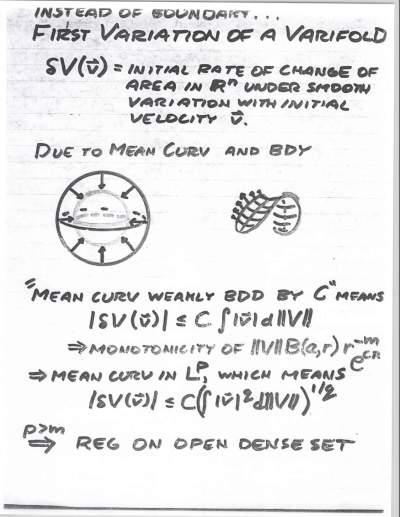 INSTEAD OF BOUNDARY...
FIRST VARIATION OF A VARIFOLD
δV(v⃗) = INITIAL RATE OF CHANGE OF
AREA IN Rⁿ UNDER SMOOTH
VARIATION WITH INITIAL
VELOCITY v⃗.
DUE TO MEAN CURV AND BDY
"MEAN CURV WEAKLY BDD BY C" MEANS
|δV(v⃗)| ≤ C ∫|v⃗| d‖V‖
⇒ MONOTONICITY OF ‖V‖B(a,r) r⁻ᵐ e^{CR}
⇒ MEAN CURV IN Lᵖ, WHICH MEANS
|δV(v⃗)| ≤ C(∫|v⃗|^q d‖V‖)^{1/q}
p>m
⇒ REG ON OPEN DENSE SET